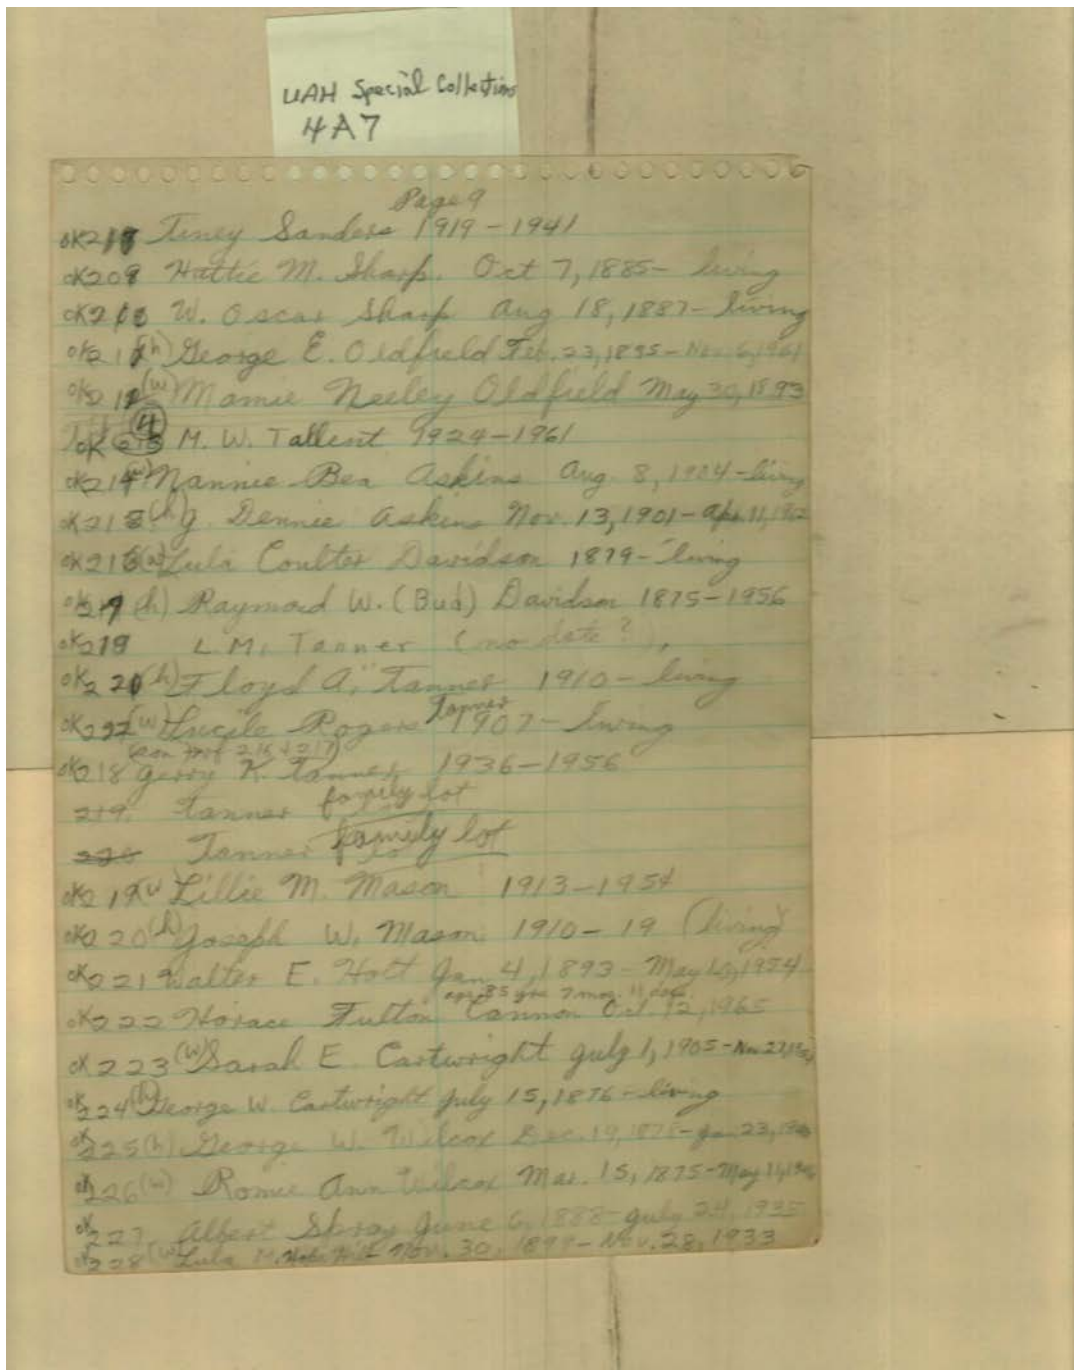 UAH Special Collections
4A7
Page 9
OK 21 Tiney Sanders 1919-1941
OK 209 Hattie M. Sharp. Oct 7, 1885- living
OK 210 W. Oscar Sharp Aug 18, 1887- living
OK 211 (h) George E. Oldfield Feb. 23, 1895- Nov. 6, 1961
OK 212 (w) Mamie Neeley Oldfield May 30, 1893
4
OK 213 M. W. Tallent 1924-1961
OK 214 (w) Nannie Bea Askins Aug. 8, 1904- living
OK 215 (h) J. Dennie Askins Nov. 13, 1901- Apr. 11, 1962
OK 216 (w) Lula Coulter Davidson 1879- living
OK 217 (h) Raymond W. (Bud) Davidson 1875-1956
OK 218 L. M. Tanner (no date?),
OK 220 (h) Floyd A. Tanner 1910- living
Tanner
OK (w) Lucile Rogers 1907- living
(son of 216 & 217)
OK 218 Gerry K. Tanner 1936-1956
219. Tanner family lot
220 Tanner family lot
OK 219 (w) Lillie M. Mason 1913-1954
OK 220 (h) Joseph W. Mason 1910-19 (living)
OK 221 Walter E. Holt Jan 4, 1893- May 10, 1954
age 85 yrs 7 mos. 11 das.
OK 222 Horace Fulton Cannon Oct. 12, 1965
OK 223 (w) Sarah E. Cartwright July 1, 1905- Nov 27,
OK 224 (h) George W. Cartwright July 15, 1876- living
OK 225 (h) George W. Wilcox Dec. 19, 1878- Jan 23,
OK 226 (w) Romie Ann Wilcox Mar. 15, 1875- May 11,
OK 227 Albert Spray June 6, 1888- July 24, 1935
OK 228 (w) Lula M. Nov. 30, 1899- Nov. 28, 1933